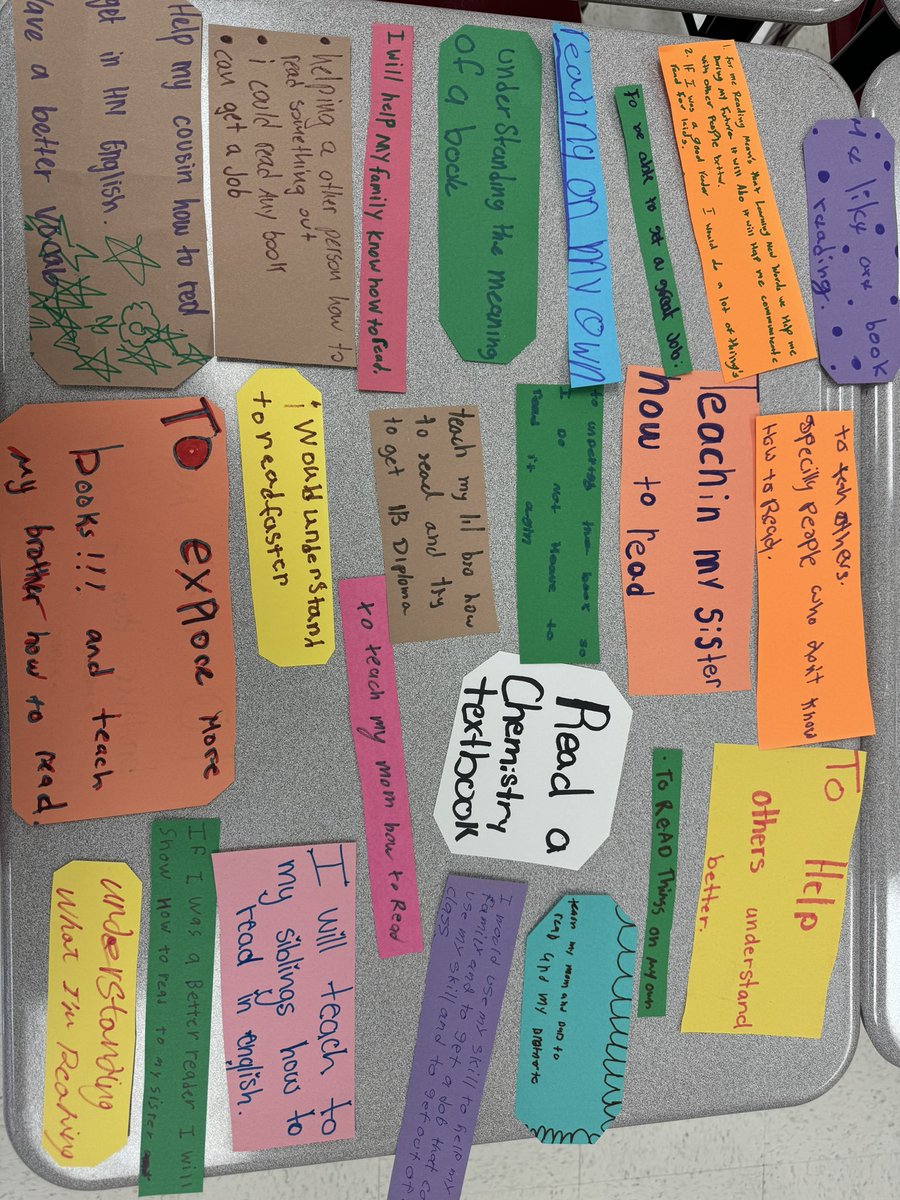 My like are book
reading.
1. for me Reading Mean's that Learning New Words we Help me
During my Future. it will Also it will Help me communicate
with other people better.
2. If I was a good reader I would do a lot of things
read for kids.
To be able to get a great Job.
reading on my own
understanding the meaning
of a book
I will help My family know how to read.
• helping a other person how to
read something out
• i could read Any book
• can get a Job
Help my cousin how to red
get in HN English.
have a better vocab
to teh others.
specilly people who don't know
How to Read.
Teachin my sister
how to read
to understing the book so
I Do not Heave to
read it agin
teach my lil bro how
to read and try
to get IB Diploma
i Would understand
to read faster
TO exPlore More
books!!! and teach
my brother how to read.
To Help
others understand
better.
• To ReAD Things on my own
Read a
Chemistry
textbook
to teach my mom how to Read
tearn my mom and DaD to
read and my
I would use my skill to help my
family and to get a Job that
use my skill and to get out of
class
I will teach to
my siblings how to
read in english.
If I was a Better reader I will
Show How to read to my sister
understanding
What I'm Reading